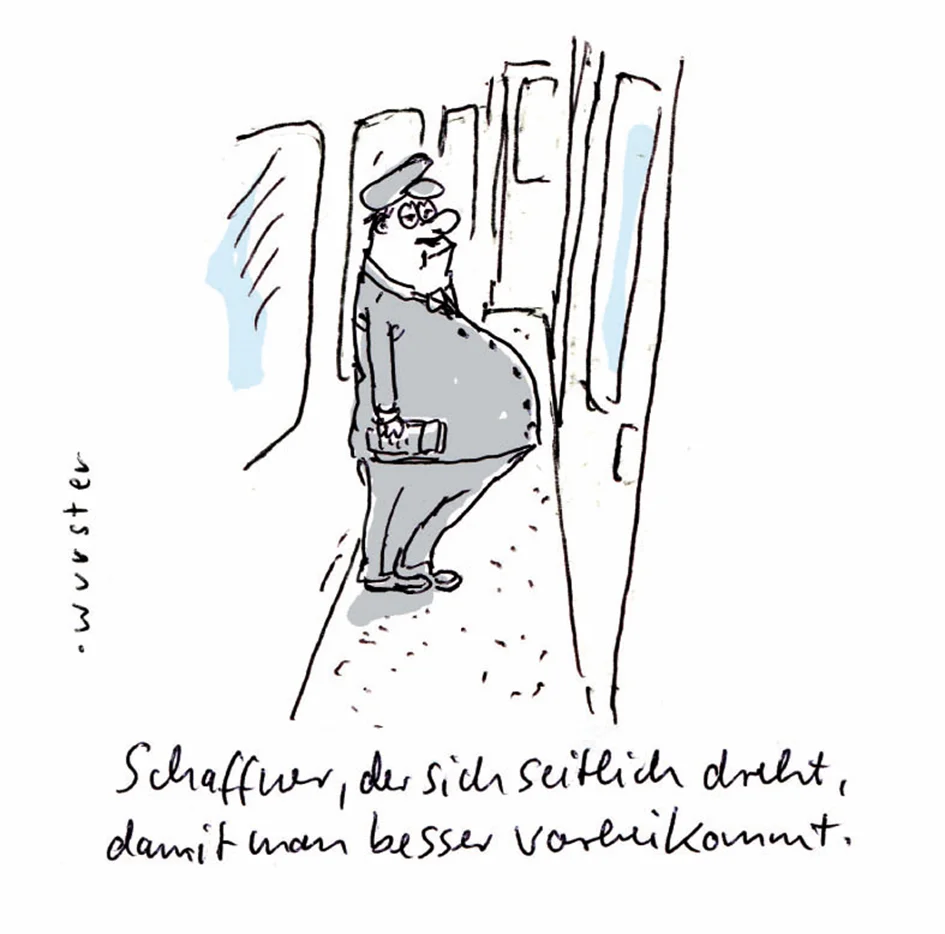 Schaffner, der sich seitlich dreht,
damit man besser vorbeikommt.
wurster